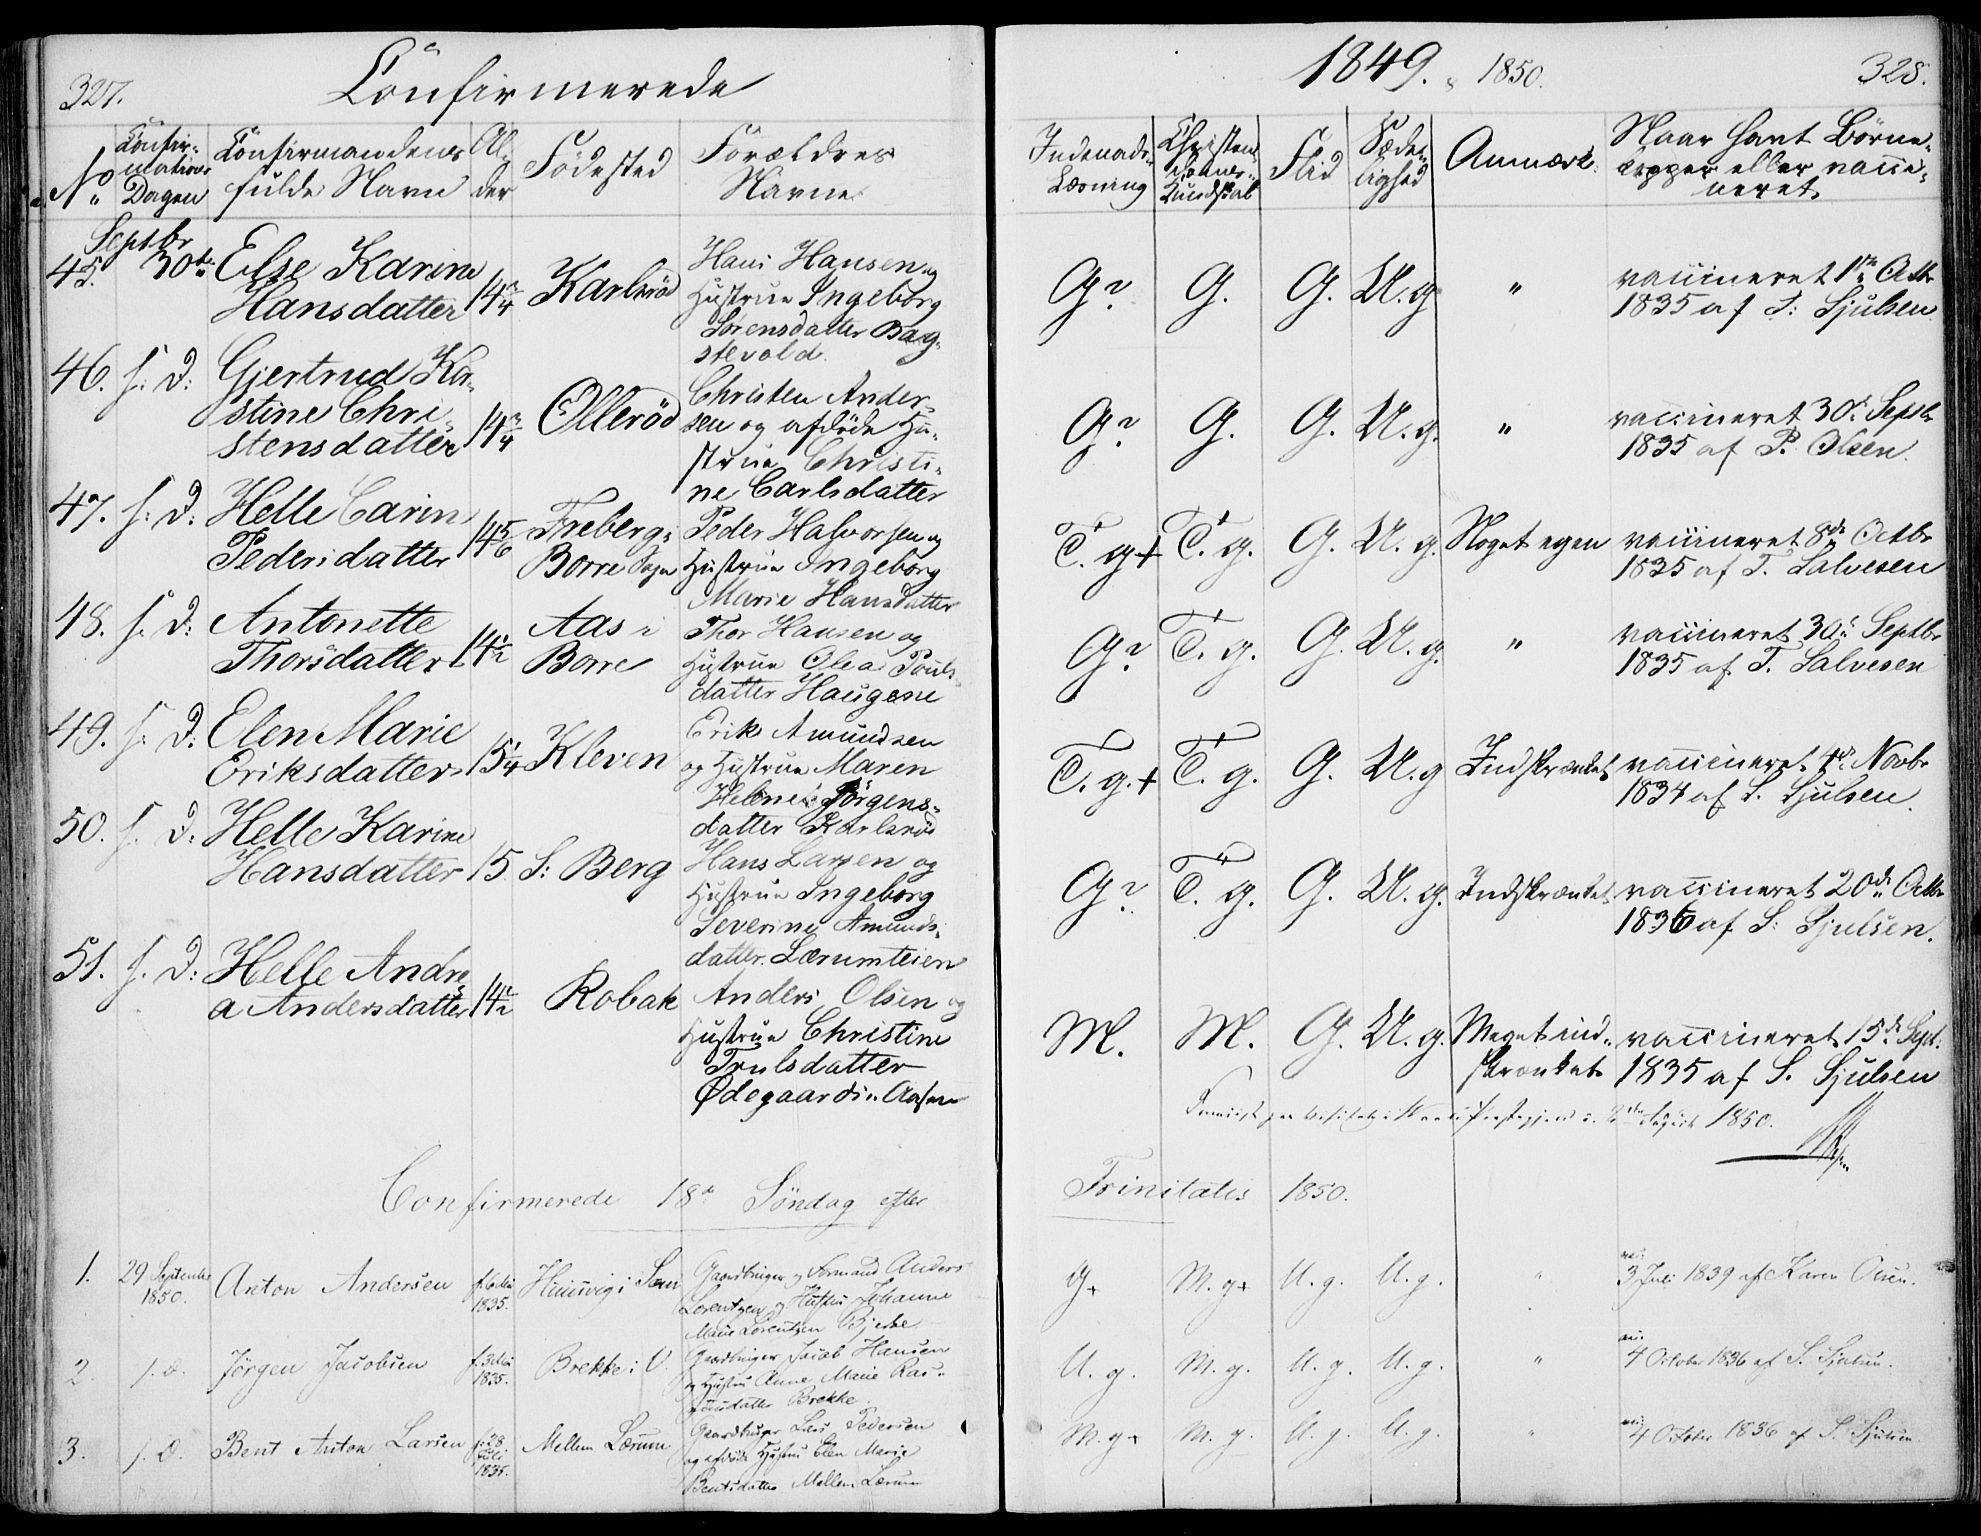 327.
Confirmerede
1849. 1850.
328.
No
Confir-
mations
Dagen
Confirmandens
fulde Navn
Al-
der
Fødested
Forældres
Navne
Indenads-
Læsning
Christen-
doms-
Kundskab
Flid
Sæde-
lighed
Anmærk:
Naar havt Børne-
copper eller vacci-
neret.
Septbr
45. 30te Else Karine
Hansdatter 14 3/4 Karlsrød
Hans Hansen og
Hustrue Ingeborg
Sørensdatter Bag-
stevold.
G? G. G. U. g. "
vaccineret 1te Octbr
1835 af S: Sjulsen
46. s. D: Gjertrud Kir-
stine Chri-
stensdatter 14 3/4 Ollerød
Christen Ander-
sen og afdøde Hu-
strue Christi-
ne Carlsdatter
G? G. G. U. g. "
vaccineret 30te Septbr
1835 af P. Olsen.
47. s. D: Helle Carin
Pedersdatter 14 5/6 Freberg i
Borre Sogn
Peder Halvorsen og
Hustrue Ingeborg
Marie Hansdatter
T. g + T. g. G. U. g. Noget egen
vaccineret 8de Octbr
1835 af T. Salvesen
48. s. D: Antonette
Thorsdatter 14 1/2 Aas i
Borre
Thor Hansen og
Hustrue Olea Pouls-
datter Haugene
G? T. g. G. U. g. "
vaccineret 30te Septbr
1835 af T. Salvesen
49. s. D: Elen Marie
Eriksdatter 15 1/4 Kleven
Erik Amundsen
og Hustrue Maren
Helene Jørgens-
datter Karlsrød
T. g. + T. g. G. U. g Indskrænket
vaccineret 4de Novbr
1834 af S. Sjulsen.
50. s. D: Helle Karine
Hansdatter 15. S: Berg
Hans Larsen og
Hustrue Ingeborg
Severine Amunds-
datter Lærumteien
G? T. g. G. U. g. Indskrænket
vaccineret 20de Octbr
1836 af S: Sjulsen.
51. s. D: Helle Andre-
a Andersdatter 14 1/2 Robak
Anders Olsen og
Hustrue Christine
Trulsdatter
Ødegaard i Aasen
M. M. G. U. g. Meget ind-
skrænket
vaccineret 15de Sept:
1835 af S. Sjulsen
August 1850.
Confirmerede 18de Søndag efter
Trinitatis 1850.
1. 29 September
1850. Anton Andersen
1835. i Sem
Gaardbruger og Formand Anders
Lorentzen og Hustru Johanne
Marie Lorentzen Bjerke
G+ M. g+ U. g. U. g. "
3 Juli 1839 af Karen Olsen.
2. s. D. Jørgen Jacobsen
1835. Brekke i V.
Gaardbruger Jacob Hansen
og Hustru Anne Marie Ras-
musdatter Brekke
U. g. M. g. U. g. U. g. "
4 October 1836 af S. Sjulsen.
3. s. D. Bent Anton Larsen f. 28
Juli
1835. Mellem Lærum
Gaardbruger Lars Pedersen
og afdøde Hustru Elen Marie
Bentsdatter Mellem Lærum
M. g + M. g. U. g. U. g. "
4 October 1836 af S. Sjulsen